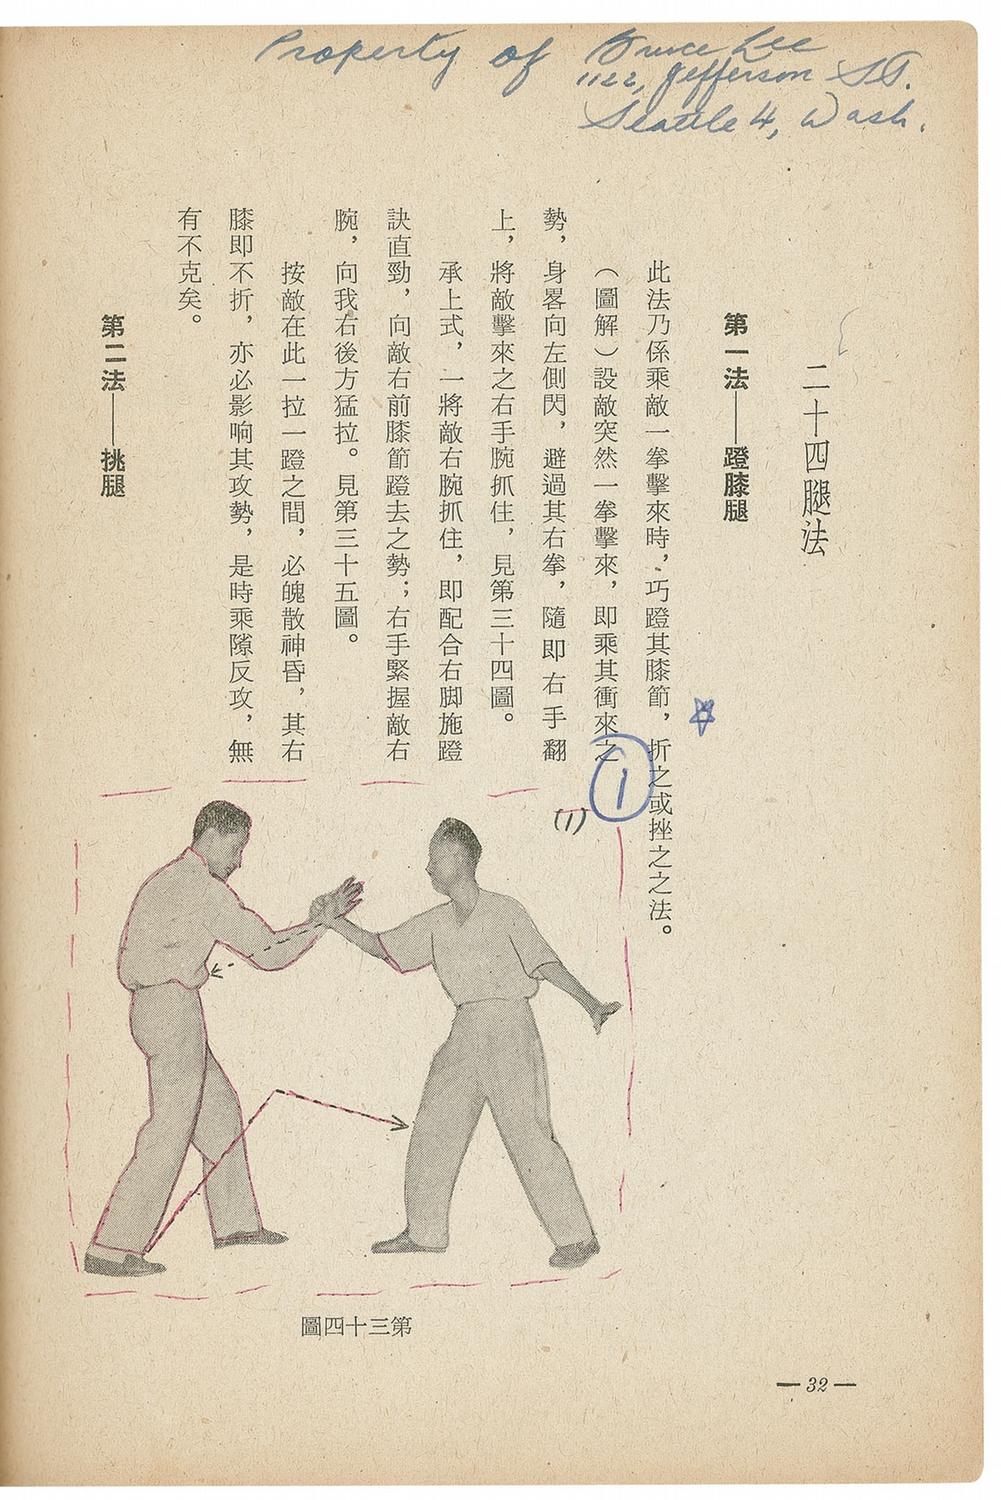 Property of Bruce Lee
1122, Jefferson ST.
Seattle 4, Wash.
二十四腿法
第一法——蹬膝腿
此法乃係乘敵一拳擊來時，巧蹬其膝節，折之或挫之之法。
（圖解）設敵突然一拳擊來，即乘其衝來之
勢，身畧向左側閃，避過其右拳，隨即右手翻
上，將敵擊來之右手腕抓住，見第三十四圖。
承上式，一將敵右腕抓住，即配合右脚施蹬
訣直勁，向敵右前膝節蹬去之勢；右手緊握敵右
腕，向我右後方猛拉。見第三十五圖。
按敵在此一拉一蹬之間，必魄散神昏，其右
膝即不折，亦必影响其攻勢，是時乘隙反攻，無
有不克矣。
第二法——挑腿
1
(1)
圖四十三第
— 32 —